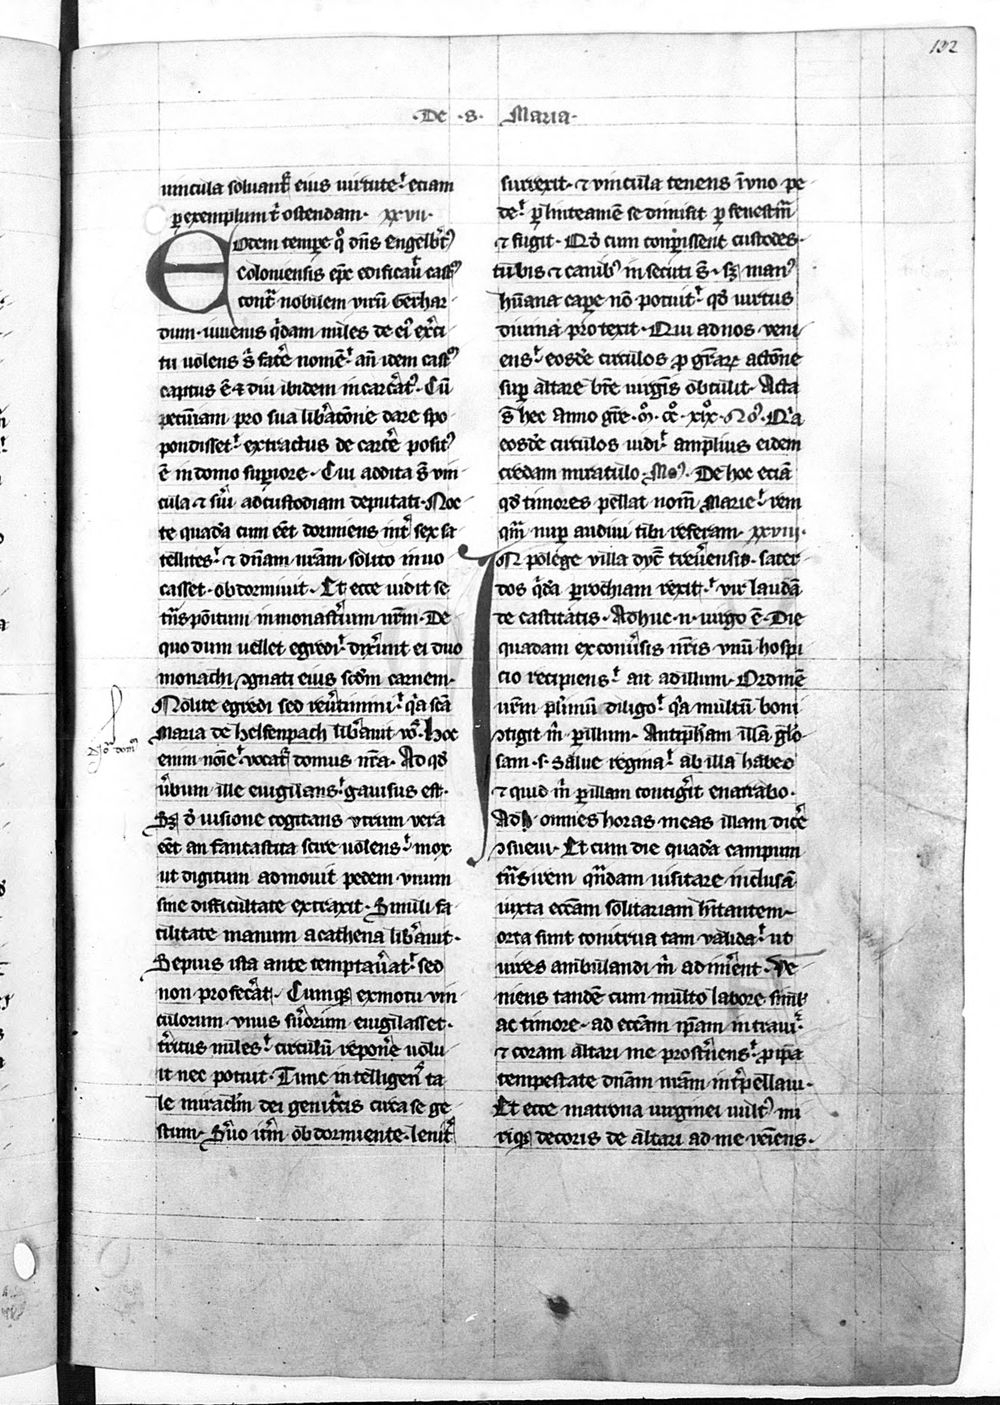 132
·De ·s· Maria·
uincula soluant᷑ eius uirtute. etiam
p exemplum t᷑ ostendam. xxvii.
Eodem tempe q᷑ dn̄s Engelbt᷑
Coloniensis ep̄c edificauit cast᷑
cont᷑ nobilem uirū Gerhar
dum. iuuenis q᷑dam miles de ei᷑ ex᷑ci
tu uolens s᷑ fac᷑e nomē. an̄ idem cast᷑
captus ē. ⁊ diu ibidem incarc᷑at᷑. Cū
pecuniam pro sua lib᷑atōne dare spo
pondisset. extractus de carc᷑e posit᷑
ē in domo supiore. Cui addita s̄ vin
cula. ⁊ s᷑ui ad custodiam deputati. Noc
te quadā cum eēt dormiens int᷑ sex sa
tellites. ⁊ dn̄am nr̄am solito inuo
casset. obdormiuit. Et ecce uidit se
tn̄spōitum in monast᷑ium nr̄m. De
quo dum uellet egredi. dix᷑unt ei duo
monachi ꝯgnati eius scd̄m carnem.
Nolite egredi sed reu᷑timini. q᷑a scā
Maria de Helsenpach lib᷑auit uos. Hoc
enim noīe uocat᷑ domus nr̄a. Ad qd̄
u᷑bum ille euigilans. gauisus est.
Sȝ de uisione cogitans vtrum vera
eēt an fantastica scire uolens. mox
ut digitum admouit pedem vnum
sine difficultate extraxit. Simili fa
cilitate manum a cathena lib᷑auit.
Sepius ista ante temptau᷑at. sed
non profec᷑at. Cumqȝ ex motu vin
culorum vnus s᷑uorum euigilasset.
t᷑ritus miles. circulū repon᷑e uolu
it nec potuit. Tunc intelligens ta
le miraclm̄ dei genit᷑cis circa se ge
stum. S᷑uo it᷑m obdormiente. lenit᷑
surrexit. ⁊ vincula tenens ī vno pe
de. p linteamē se dimisit p fenest᷑m
⁊ fugit. Qd̄ cum conpissent custodes.
tubis ⁊ canib᷑ insecuti s̄. sȝ man᷑
hūana cape nō potuit. qd̄ uirtus
diuina protexit. Qui ad nos veni
ens. eosdē circulos p gr̄arȝ actōne
sup altare bt̄e uirgīs obtulit. Acta
s̄ hec anno gr̄e. mͦ. ccͦ. xixͦ. Nos. Q᷑a
eosdē circulos uidi. amplius eidem
credam miraculo. Mos. De hoc eciā
qd̄ timores pellat nom̄ Marie. rem
qm̄ nup audiui tibi referam. xxviii.
IN polege villa dyoc̄ treu᷑ensis. sacer
dos q᷑dā parrochiam rexit. vir laudā
de castitatis. Adhuc n. uirgo ē. Die
quadam ex conu᷑sis nr̄is vnū hospi
cio recipiens. ait ad illum. Ordinē
ur̄m plimū diligo. q᷑a multū boni
ꝯtigit m̄ p illum. Antiph̄am illā glo
sam. s. Salue regina. ab illa habeo
⁊ quid m̄ p illam contig᷑it enarrabo.
Ad omnes horas meas illam dic᷑e
ꝯsueui. Et cum die quadā campum
tn̄sirem qn̄dam uisitare inclusā
iuxta ecc̄am solitariam h̄itantem.
orta sunt tonitrua tam valida. ut
uires ambulandi m̄ adim᷑ent. Ve
niens tandē cum multo labore simul
ac timore. ad ecc̄am ip̄am intraui.
⁊ coram altari me prost᷑nens. p ip̄a
tempestate dn̄am nr̄am int᷑pellaui.
Et ecce matrona uirginei uult᷑ mi
riqȝ decoris de altari ad me ueniens.